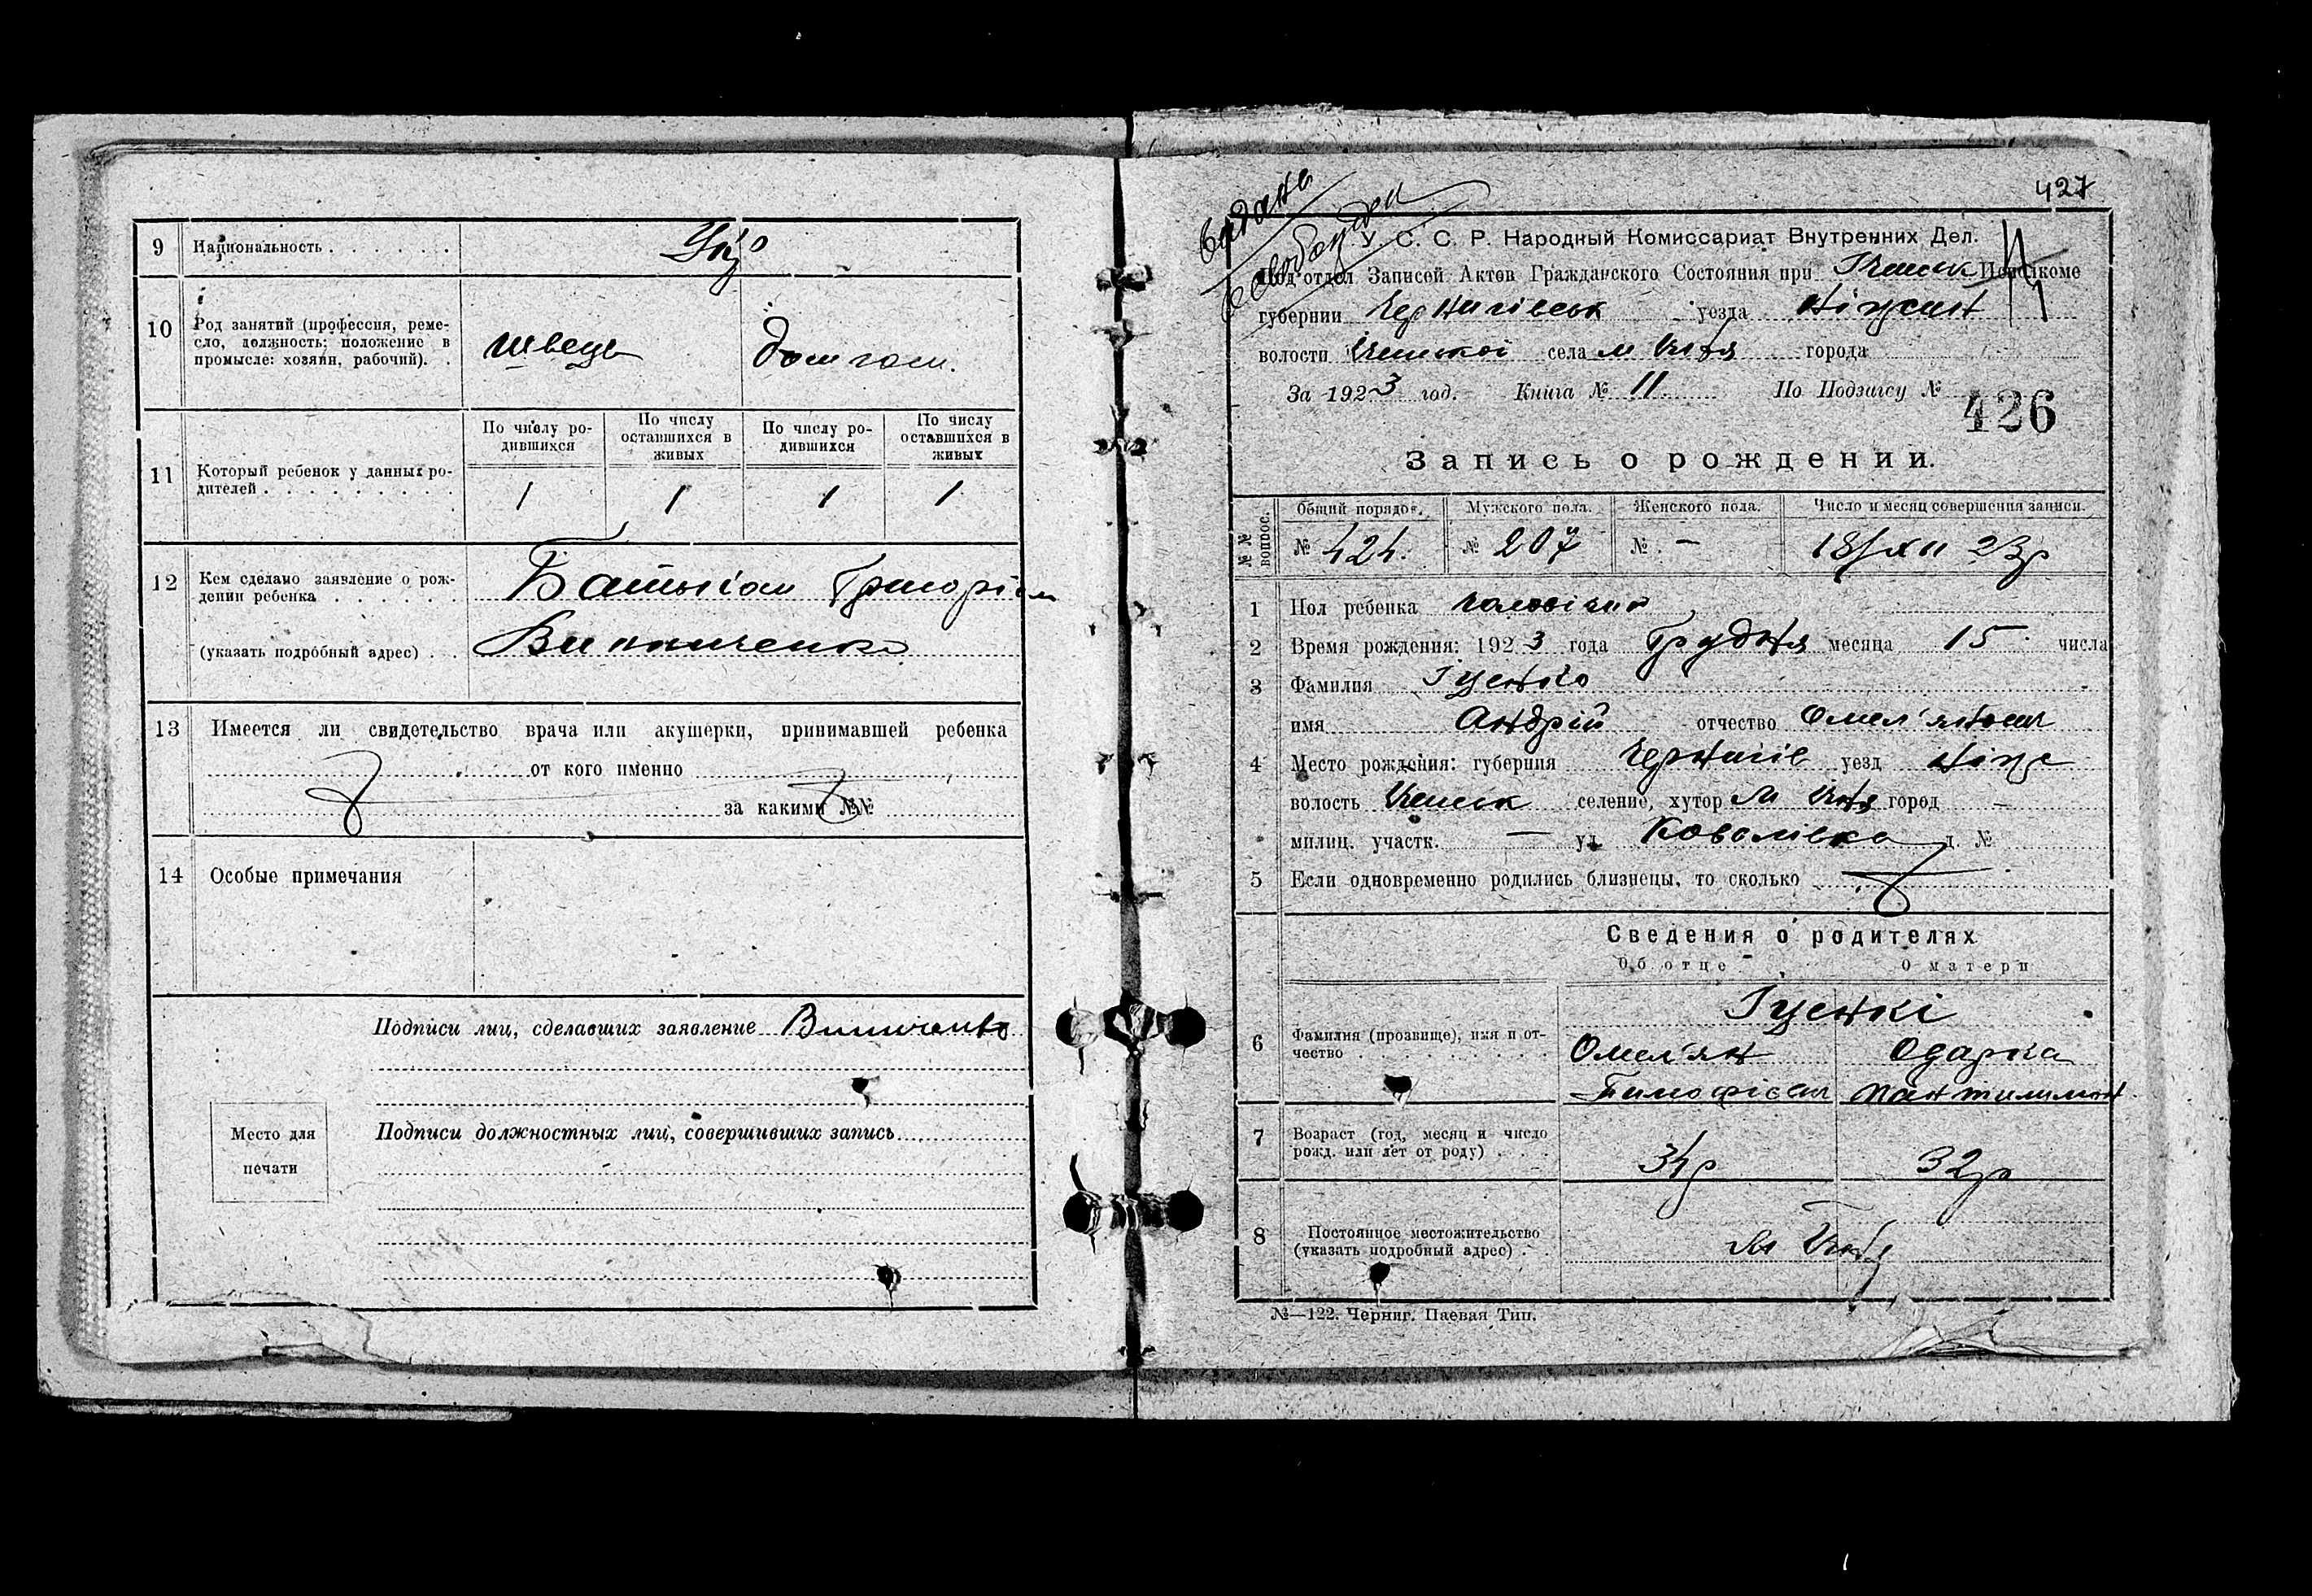 9 Национальность . . . . . . . Укр
10 Род занятий (профессия, реме-
сло, должность; положение в
промысле: хозяин, рабочий). .
швець
дом госп.
11 Который ребенок у данных ро-
дителей . . . . . . . . .
По числу ро-
дившихся
По числу
оставшихся в
живых
По числу ро-
дившихся
По числу
оставшихся в
живых
1 1 1 1
12 Кем сделано заявление о рож-
дении ребенка . . . . . .
(указать подробный адрес) . .
Григорієм
Винниченко
13 Имеется ли свидетельство врача или акушерки, принимавшей ребенка
от кого именно
за какими №№
14 Особые примечания
Подписи лиц, сделавших заявление Винниченко
Место для
печати
Подписи должностных лиц, совершивших запись
427
видань
У. С. С. Р. Народный Комиссариат Внутренних Дел.
Под'отдел Записей Актов Гражданского Состояния при Ічнянськ Исполкоме
губернии Чернигівськ уезда Ніжинс
волости Ічнянської села м Ічня города
За 1923 год. Книга № 11. По Подзагсу № 426
Запись о рождении.
№№ вопрос.
Общий порядок. Мужского пола. Женского пола. Число и месяц совершения записи.
№ 424. № 207 № - 18/XII 23р
1 Пол ребенка чоловічий
2 Время рождения: 1923 года Грудня месяца 15 числа
3 Фамилия Гуценко
имя Андрій отчество Омел'янович
4 Место рождения: губерния Чернигів уезд Ніж
волость Ічнянськ селение, хутор м Ічня город —
милиц. участк. — ул. Ковалівка д. №
5 Если одновременно родились близнецы, то сколько
Сведения о родителях
Об отце О матери
6 Фамилия (прозвище), имя и от-
чество . . . . . . . . . .
Гуценкі
Омел'ян Одарка
Тимофієвич Пантилимон
7 Возраст (год, месяц и число
рожд. или лет от роду) . . .
34р 32р
8 Постоянное местожительство
(указать подробный адрес) . .
м Ічня
№—122. Черниг. Паевая Тип.